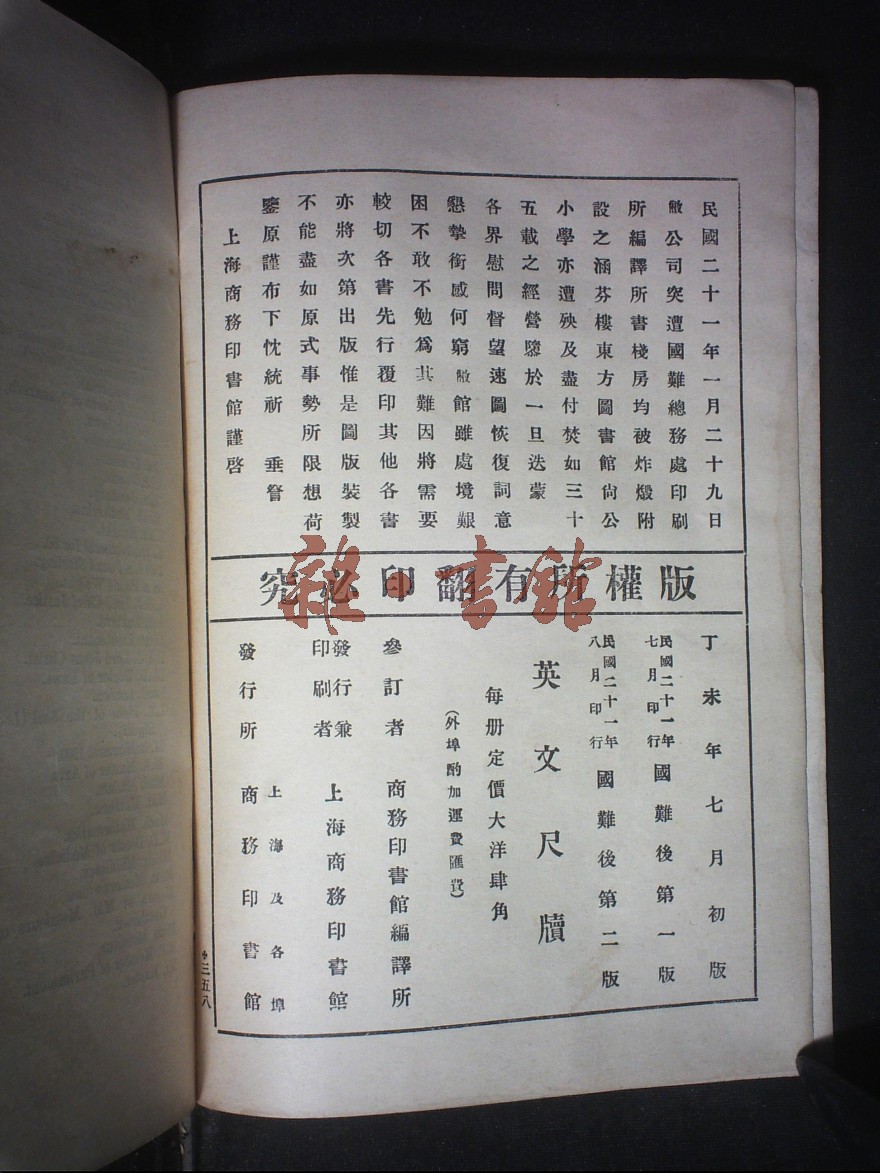 民國二十一年一月二十九日
敝公司突遭國難總務處印刷
所編譯所書棧房均被炸燬附
設之涵芬樓東方圖書館尙公
小學亦遭殃及盡付焚如三十
五載之經營隳於一旦迭蒙
各界慰問督望速圖恢復詞意
懇摯銜感何窮敝館雖處境艱
困不敢不勉爲其難因將需要
較切各書先行覆印其他各書
亦將次第出版惟是圖版裝製
不能盡如原式事勢所限想荷
鑒原謹布下忱統祈 垂詧
上海商務印書館謹啓
版權所有翻印必究
雜·書館
丁未年七月初版
民國二十一年七月印行 國難後第一版
民國二十一年八月印行 國難後第二版
英文尺牘
每册定價大洋肆角
(外埠酌加運費匯費)
參訂者 商務印書館編譯所
發行兼印刷者 上海商務印書館
發行所 上海及各埠 商務印書館
三五八